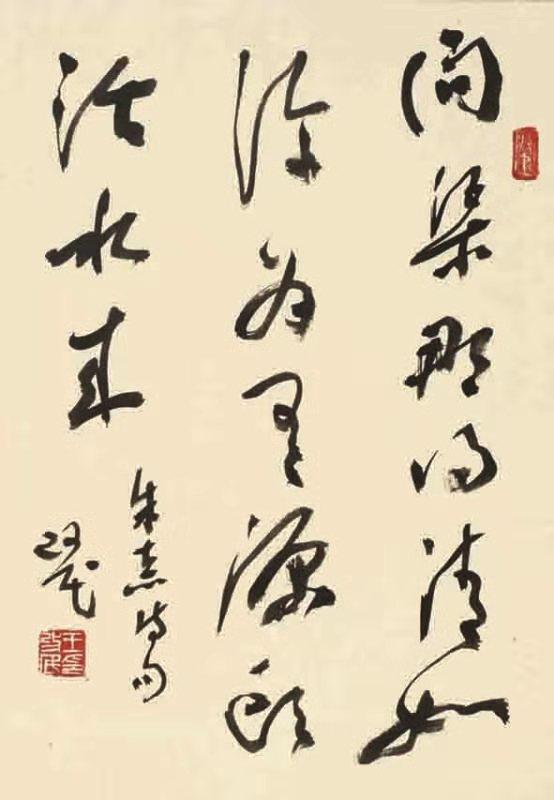 問渠那得清如
許為有源頭
活水来
朱熹詩句